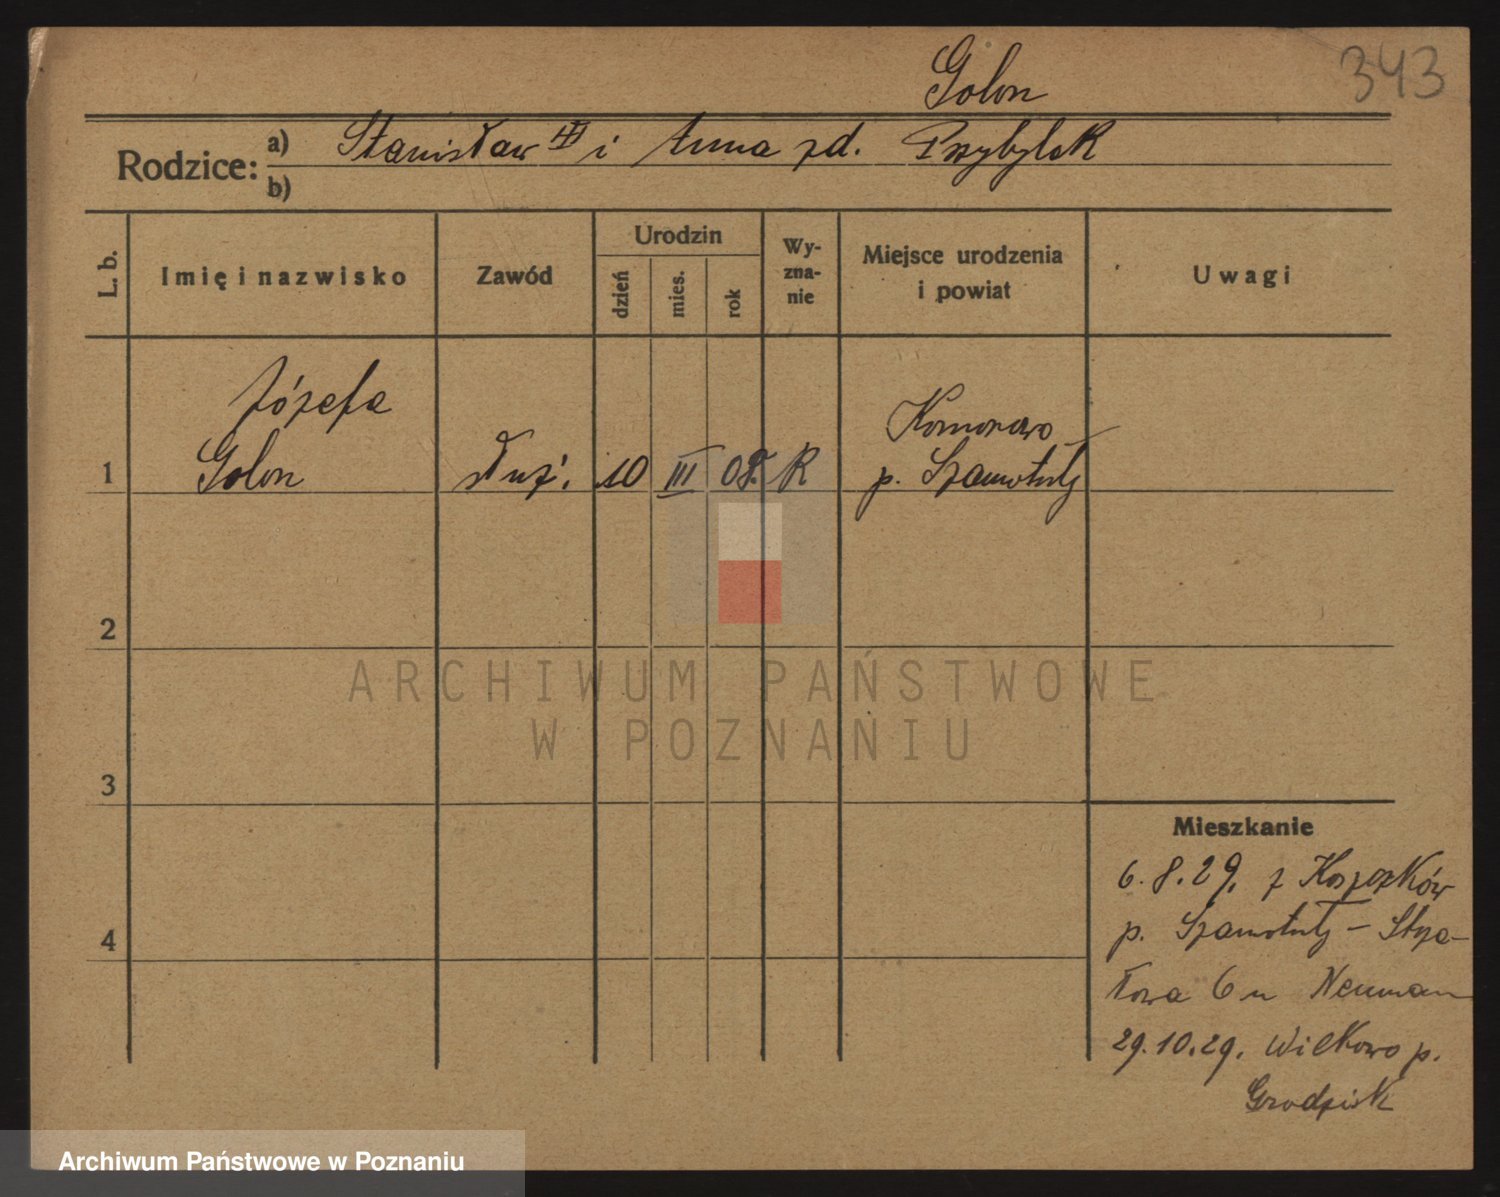 Golon
343
Rodzice:
a) Stanisław i Anna zd. Przybylak
b)
L. b.
Imię i nazwisko
Zawód
Urodzin
dzień
mies.
rok
Wy-
zna-
nie
Miejsce urodzenia
i powiat
Uwagi
Józefa
Golon
1
służ.
10
III
08.
R
Komorowo
p. Szamotuły
2
3
4
ARCHIWUM PAŃSTWOWE
W POZNANIU
Mieszkanie
6.8.29. z
p. Szamotuły –
6 u Neuman
29.10.29. Wilkowo p.
Grodzisk
Archiwum Państwowe w Poznaniu